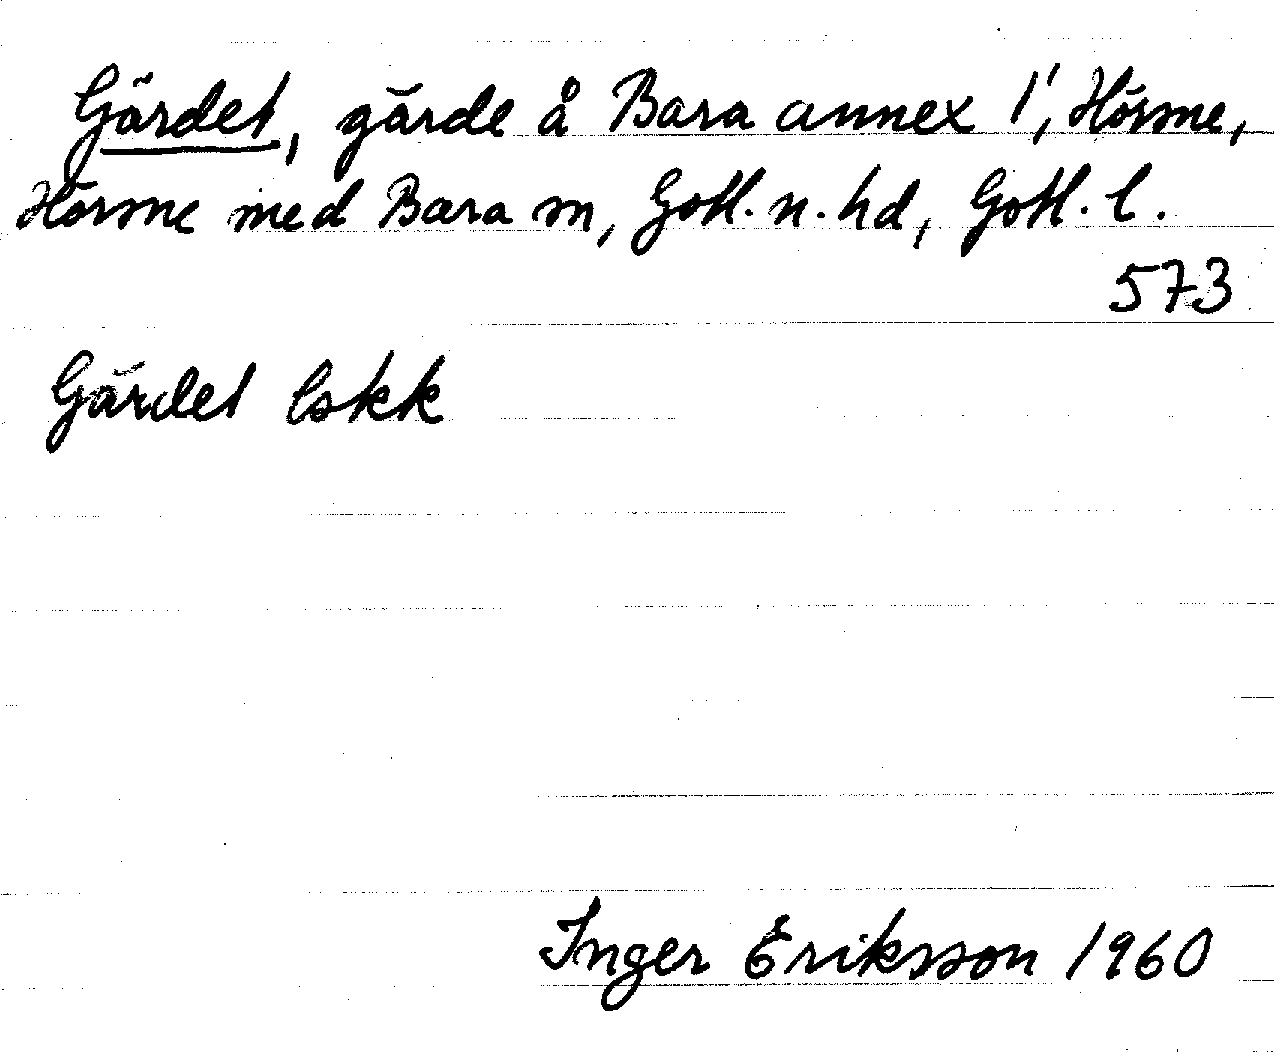 Gärdet, gärde å Bara annex 1¹, Hörsne,
Hörsne med Bara sn, Gotl. n. hd, Gotl. l.
573
Gärdet Eskk
Inger Eriksson 1960